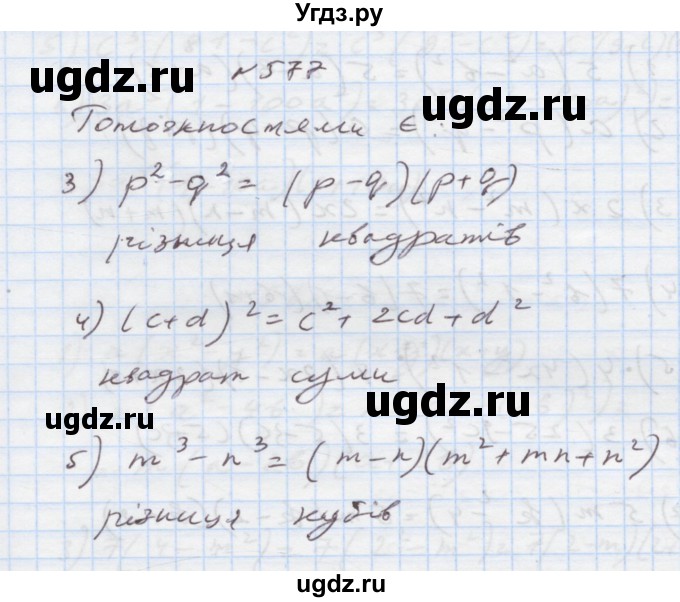 Угдз.ру
ugdz.ru
№577
ugdz.ru
Тотожностями є:
3) p² - q² = (p - q)(p + q)
різниця квадратів
4) (c + d)² = c² + 2cd + d²
квадрат суми
ugdz.ru
ugdz.ru
5) m³ - n³ = (m - n)(m² + mn + n²)
різниця кубів
ugdz.ru
ugdz.ru